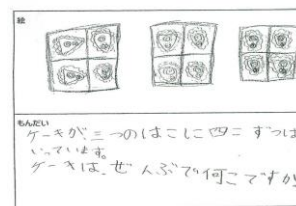 絵
もんだい
ケーキが三つのはこに四こずつは
いっています。
ケーキは、ぜんぶで何こですか